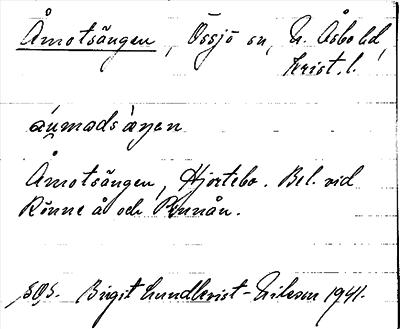 Åmotsängen, Össjö sn, N. Åsbo hd,
Krist. l.
áu̯mads ̀ äŋen
Åmotsängen, Hjortebo. Bel. vid
Rönne å och Pinnån.
SOS. Birgit Lundkvist-Nilsson 1941.